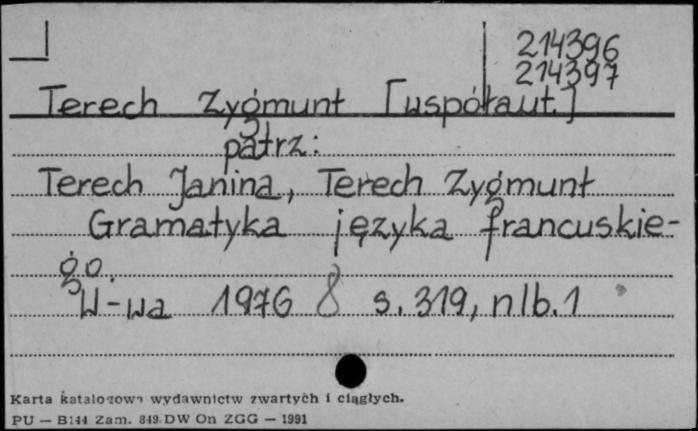 214396
214397
Terech Zygmunt [współaut.]
patrz:
Terech Janina, Terech Zygmunt
Gramatyka języka francuskie-
go.
W-wa 1976 8 s. 319, nlb. 1
Karta katalogowa wydawnictw zwartych i ciągłych.
PU — B144 Zam. 849 DW On ZGG — 1991